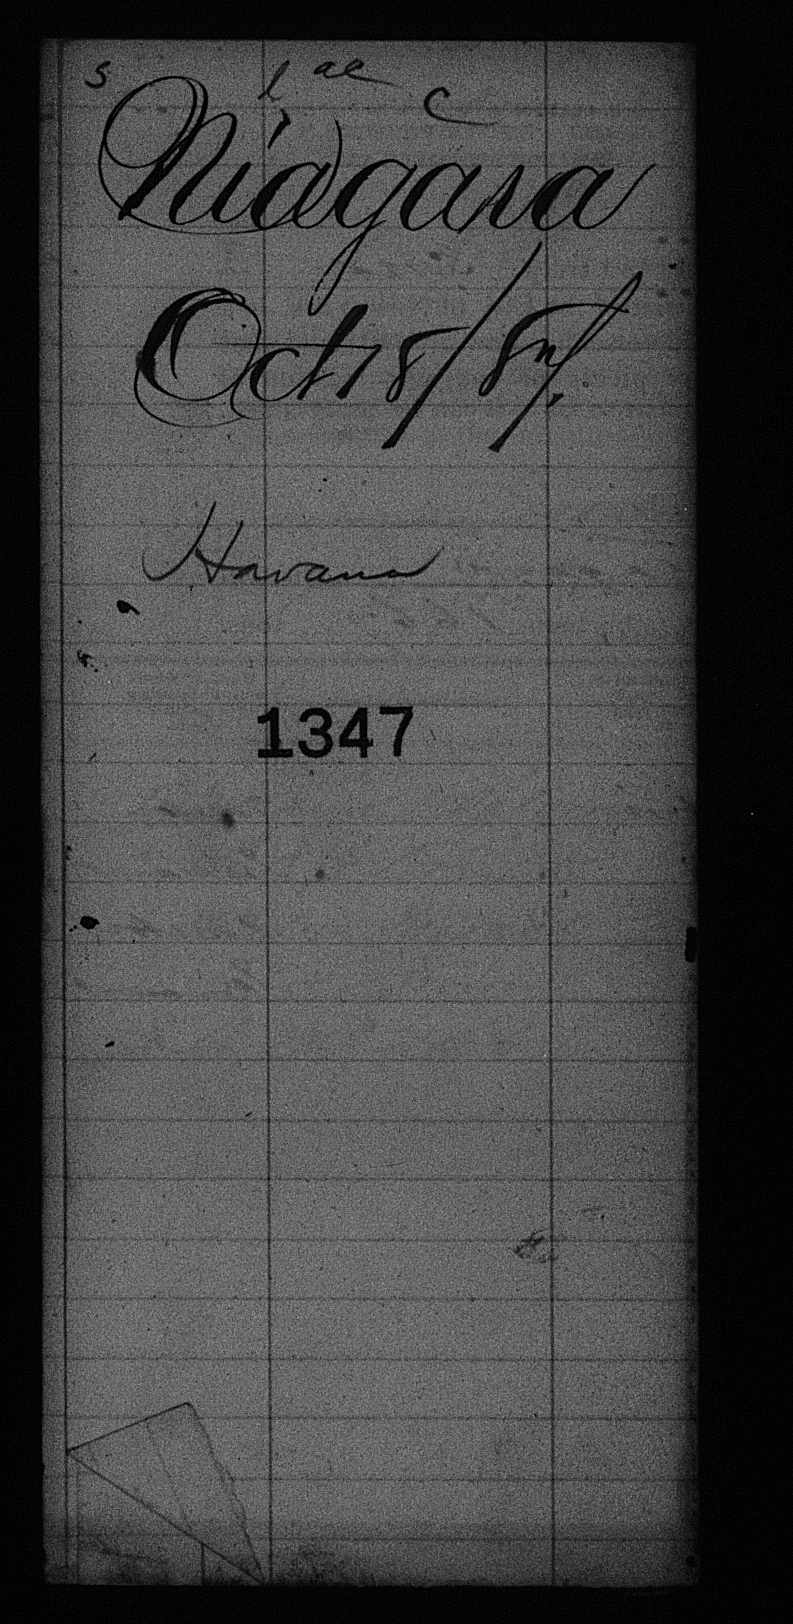 Niagara
Oct 18/87.
Havana
1347